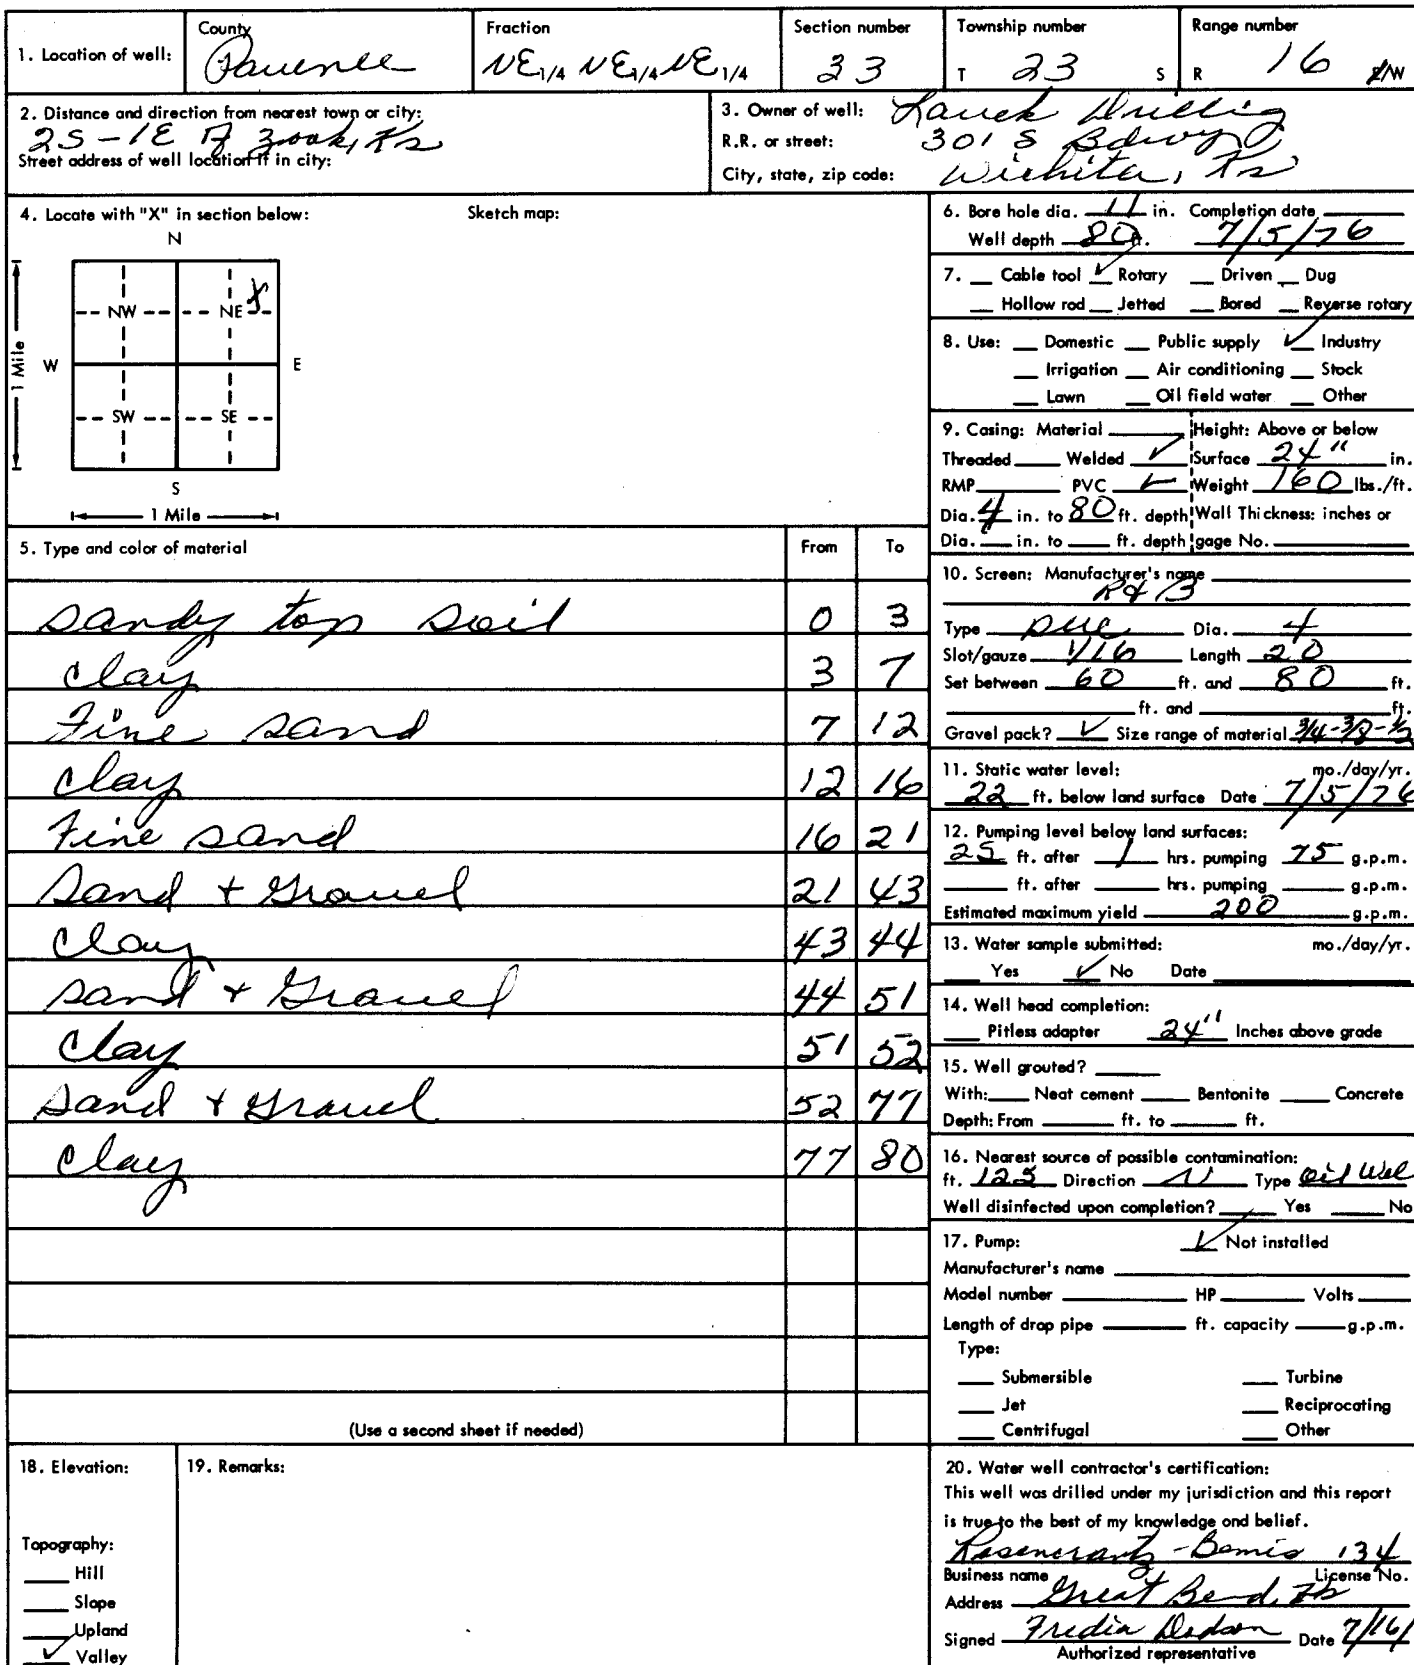 1. Location of well: County Pawnee Fraction NE 1/4 NE 1/4 NE 1/4 Section number 33 Township number T 23 S Range number R 16 E/W
2. Distance and direction from nearest town or city:
2S-1E of Zook, Ks
Street address of well location if in city:
3. Owner of well: Lauck Drilling
R.R. or street: 301 S Bdwy
City, state, zip code: Wichita, Ks
4. Locate with "X" in section below: Sketch map:
N
NW NE X
W E
1 Mile
SW SE
S
1 Mile
5. Type and color of material From To
sandy top soil 0 3
clay 3 7
Fine sand 7 12
clay 12 16
Fine sand 16 21
Sand + Gravel 21 43
Clay 43 44
sand + Gravel 44 51
Clay 51 52
Sand + Gravel 52 77
Clay 77 80
(Use a second sheet if needed)
6. Bore hole dia. 11 in. Completion date
Well depth 80 ft. 7/5/76
7. __ Cable tool ✓ Rotary __ Driven __ Dug
__ Hollow rod __ Jetted __ Bored __ Reverse rotary
8. Use: __ Domestic __ Public supply ✓ Industry
__ Irrigation __ Air conditioning __ Stock
__ Lawn __ Oil field water __ Other
9. Casing: Material ____ Height: Above or below
Threaded ____ Welded ✓ Surface 24" in.
RMP ____ PVC ✓ Weight 160 lbs./ft.
Dia. 4 in. to 80 ft. depth Wall Thickness: inches or
Dia. __ in. to __ ft. depth gage No. ____
10. Screen: Manufacturer's name
R & B
Type pvc Dia. 4
Slot/gauze 1/16 Length 20
Set between 60 ft. and 80 ft.
____ ft. and ____ ft.
Gravel pack? ✓ Size range of material 3/4-3/8-1/2
11. Static water level: mo./day/yr.
22 ft. below land surface Date 7/5/76
12. Pumping level below land surfaces:
25 ft. after 1 hrs. pumping 75 g.p.m.
____ ft. after ____ hrs. pumping ____ g.p.m.
Estimated maximum yield 200 g.p.m.
13. Water sample submitted: mo./day/yr.
__ Yes ✓ No Date ____
14. Well head completion:
__ Pitless adapter 24" Inches above grade
15. Well grouted? ____
With: __ Neat cement __ Bentonite __ Concrete
Depth: From ____ ft. to ____ ft.
16. Nearest source of possible contamination:
ft. 125 Direction N Type Oil Well
Well disinfected upon completion? ____ Yes ____ No
17. Pump: ✓ Not installed
Manufacturer's name ____
Model number ____ HP ____ Volts ____
Length of drop pipe ____ ft. capacity ____ g.p.m.
Type:
__ Submersible __ Turbine
__ Jet __ Reciprocating
__ Centrifugal __ Other
18. Elevation:
Topography:
__ Hill
__ Slope
__ Upland
✓ Valley
19. Remarks:
20. Water well contractor's certification:
This well was drilled under my jurisdiction and this report
is true to the best of my knowledge and belief.
Rosencrantz-Bemis 134
Business name License No.
Address Great Bend, Ks
Signed Fredia Dodson Date 7/16/
Authorized representative